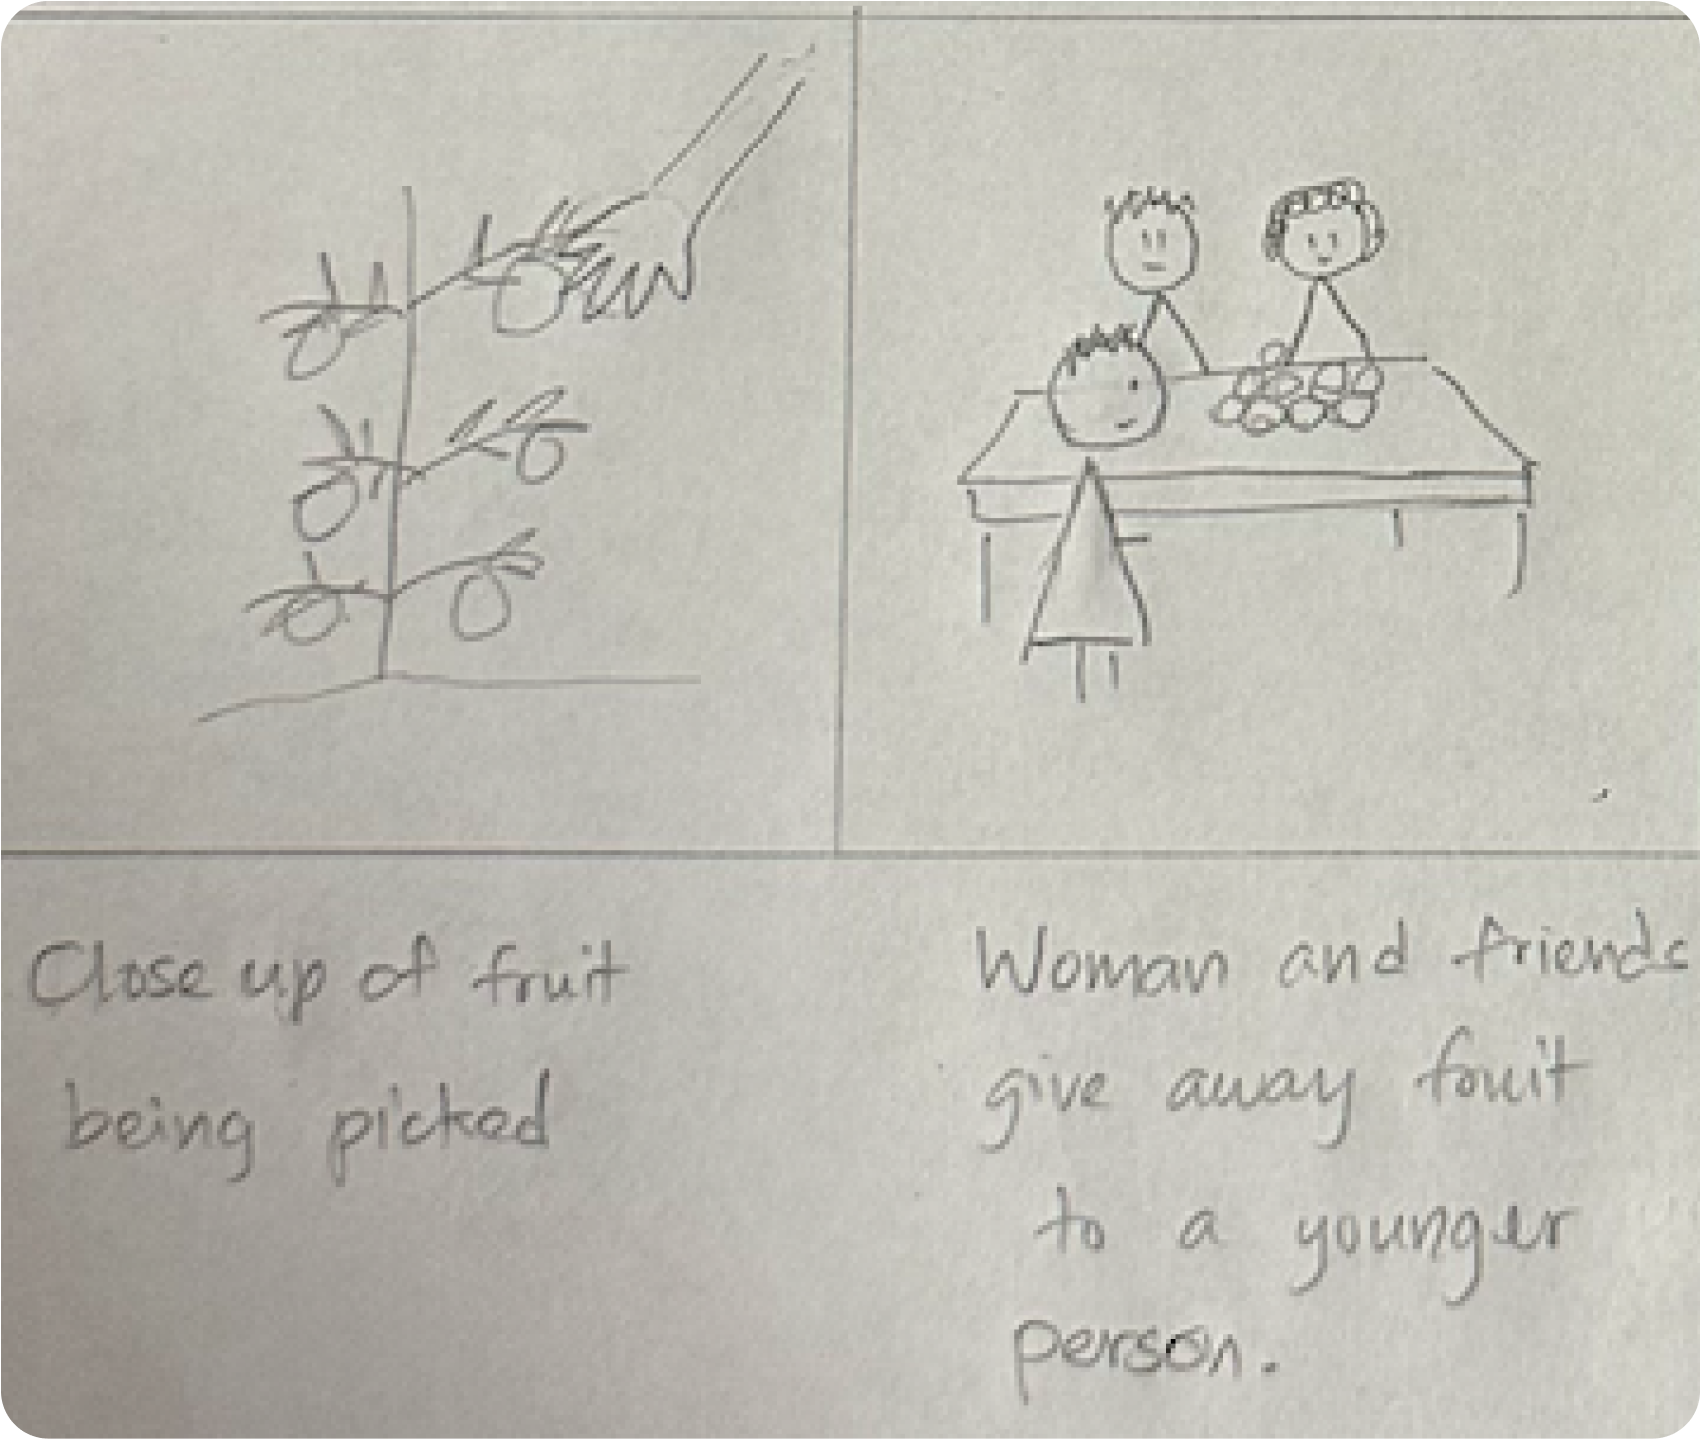 Close up of fruit
being picked
Woman and friends
give away fruit
to a younger
person.